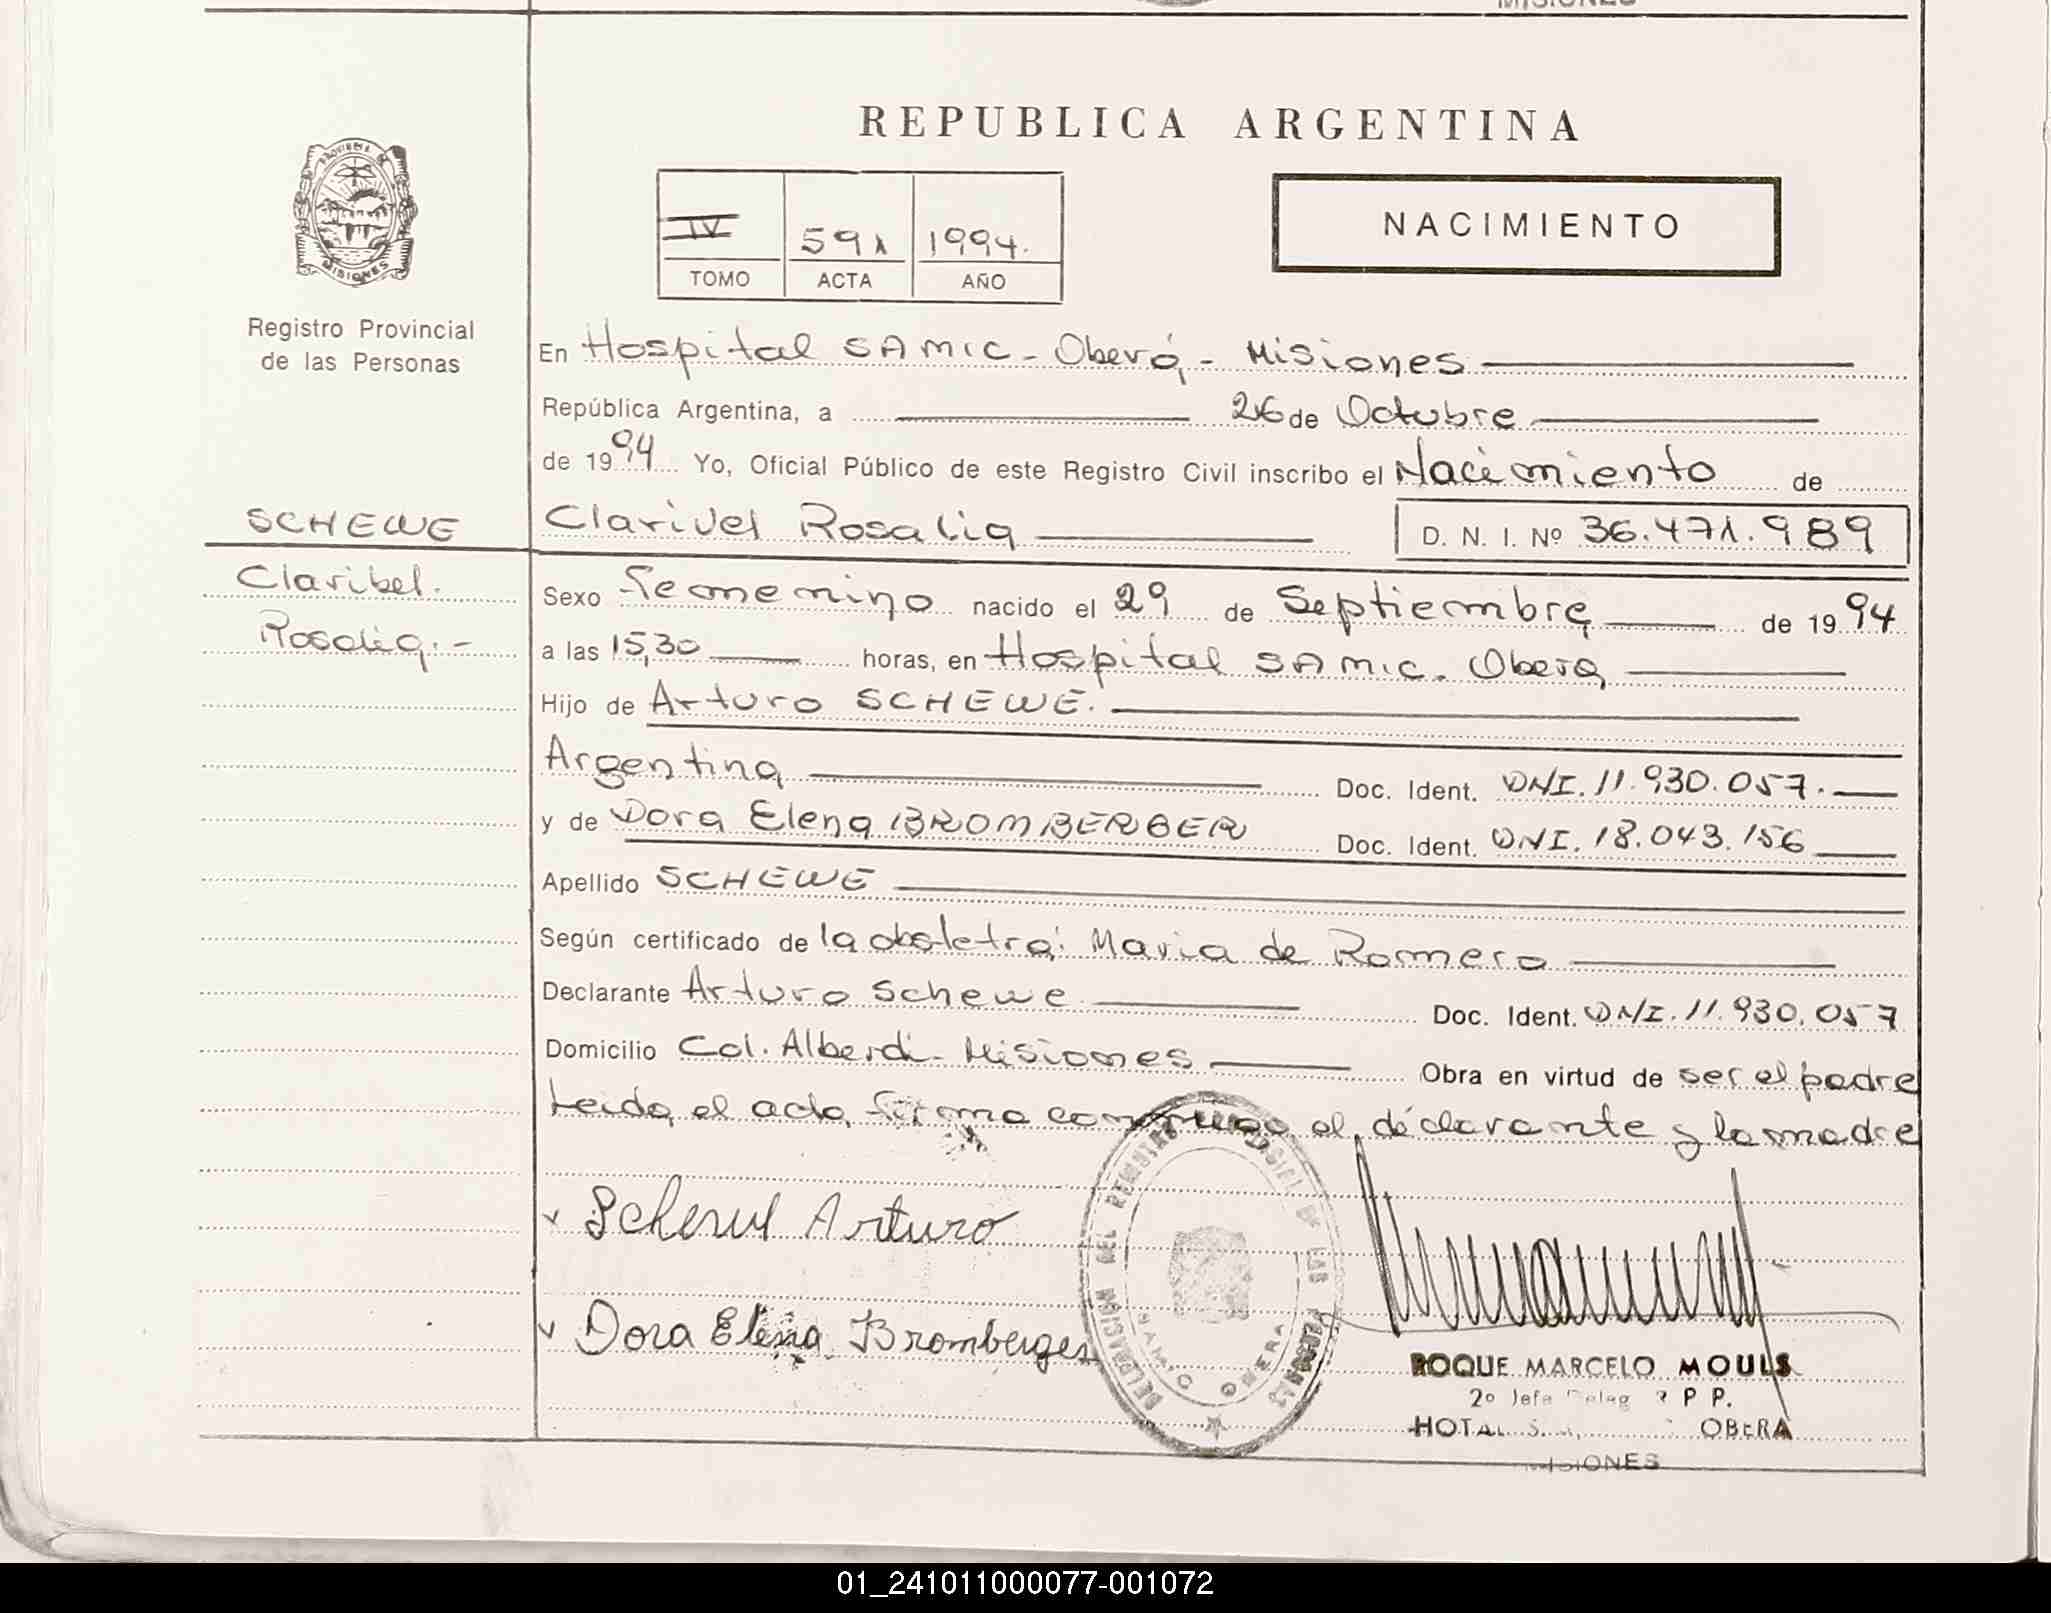 REPUBLICA ARGENTINA
PROVINCIA DE
MISIONES
IV 591 1994.
TOMO ACTA AÑO
NACIMIENTO
Registro Provincial
de las Personas
En Hospital SAMIC - Oberá, - Misiones
República Argentina, a 26 de Octubre
de 1994 Yo, Oficial Público de este Registro Civil inscribo el Nacimiento de
SCHEWE
Clarivel Rosalia D. N. I. Nº 36.471.989
Claribel.
Rosalia.-
Sexo Femenino nacido el 29 de Septiembre de 1994
a las 15,30 horas, en Hospital SAMIC. Obera,
Hijo de Arturo SCHEWE.
Argentina Doc. Ident. DNI. 11.930.057.
y de Dora Elena BROMBERGER Doc. Ident. DNI. 18.043.156
Apellido SCHEWE
Según certificado de la obstetra: Maria de Romero
Declarante Arturo Schewe Doc. Ident. DNI. 11.930.057
Domicilio Col. Alberdi - Misiones Obra en virtud de ser el padre
Leida el acta, firma conmigo el declarante y la madre
Arturo
Dora Elena Bromberger
DELEGACION DEL REGISTRO PROVINCIAL DE LAS PERSONAS
SAMIC OBERA
ROQUE MARCELO MOULS
2º Jefe Deleg P P.
OBERA
MISIONES
01_241011000077-001072